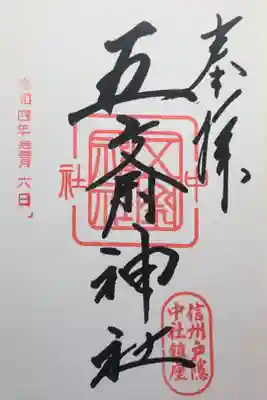 奉拝
五斎神社
中社
令和四年拾月六日
信州戸隠
中社鎮座